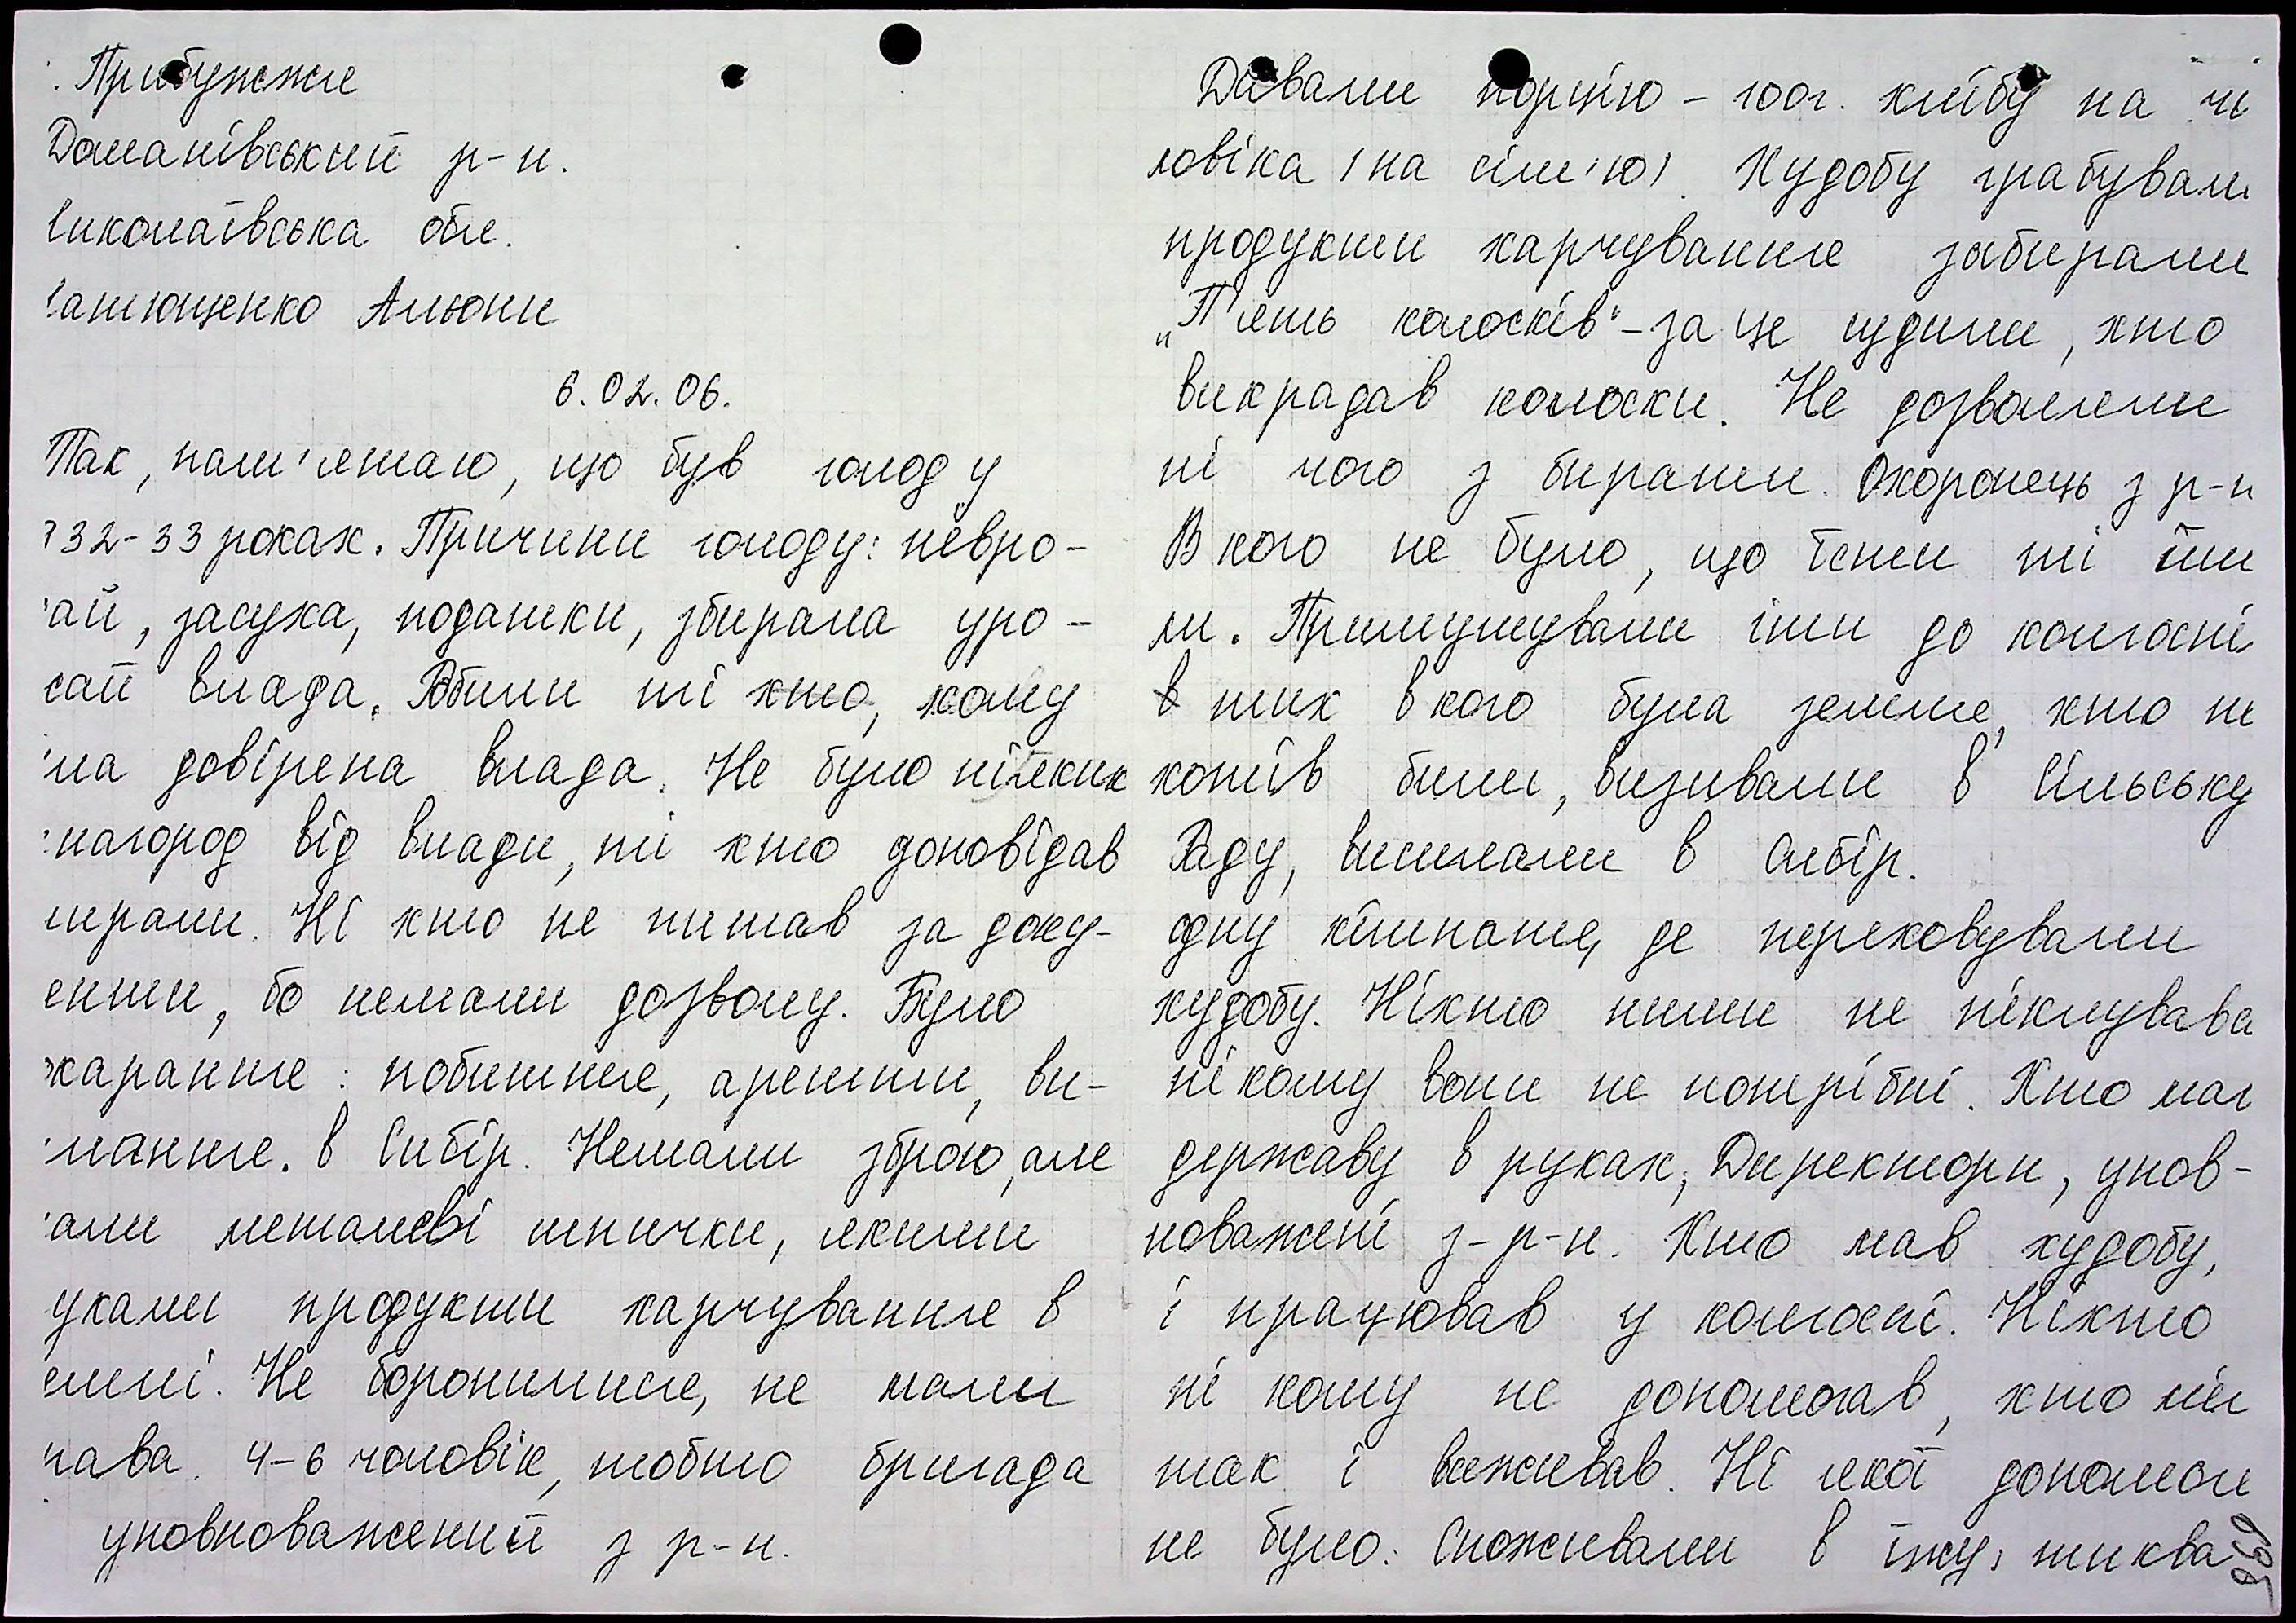 . Прибужжя
Доманівський р-н.
иколаївська обл.
атющенко Альони
6.02.06.
Так, пам'ятаю, що був голод у
32-33 роках. Причини голоду: невро-
ай, засуха, податки, збирала уро-
сай влада. Робили ті хто, кому
ла довірена влада. Не було ніяких
нагород від влади, ті хто доповідав
ирали. Ні хто не питав за доку-
енти, бо немали дозволу. Було
карання: побиття, арешти, ви-
лання. в Сибір. Немали зброю, але
али металеві шпички, якими
укали продукти харчування в
емлі. Не боронилися, не мали
рава. 4-6 чоловік, тобто бригада
уповноважений з р-н.
Давали порцію - 100г. хліба на чо
ловіка (на сім'ю). Худобу грабували
продукти харчування забирали
„П'ять колосків" - за це судили, хто
викрадав колоски. Не дозволяли
ні чого з бирати. Охоронець з р-н
В кого не було, що їсти ті йш
ли. Примушували іти до колгоспі
в тих в кого була земля, хто не
хотів били, визивали в Сільську
Раду, висилали в Сибір.
одну кімнату, де переховували
худобу. Ніхто ними не піклувава
ні кому вони не потрібні. Хто мав
державу в руках, Директори, упов-
новажені з-р-н. Хто мав худобу,
і працював у колгоспі. Ніхто
ні кому не допомогав, хто як
так і виживав. Ні якої допомоги
не було. Споживали в їжу: тиква
259